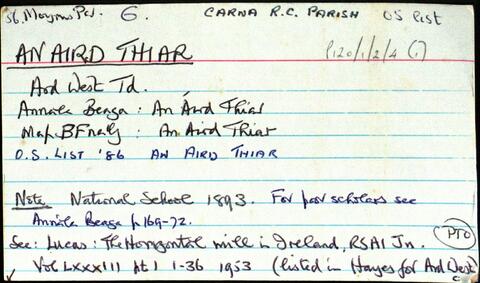 6. CARNA R.C. PARISH OS List
AN AIRD THIAR P120/1/2/4 (i)
Ard West Td.
Annála Beaga : An Áird Thiar
Map BFnally : An Aird Thiar
O.S. LIST '86 AN AIRD THIAR
Note National School 1893. For poor scholars see
Annála Beaga p 169-72.
See: Lucas: The Horizontal mill in Ireland, RSAI Jn.
PTO
Vol LXXXIII pt 1 1-36 1953 (listed in Hayes for Ard West)